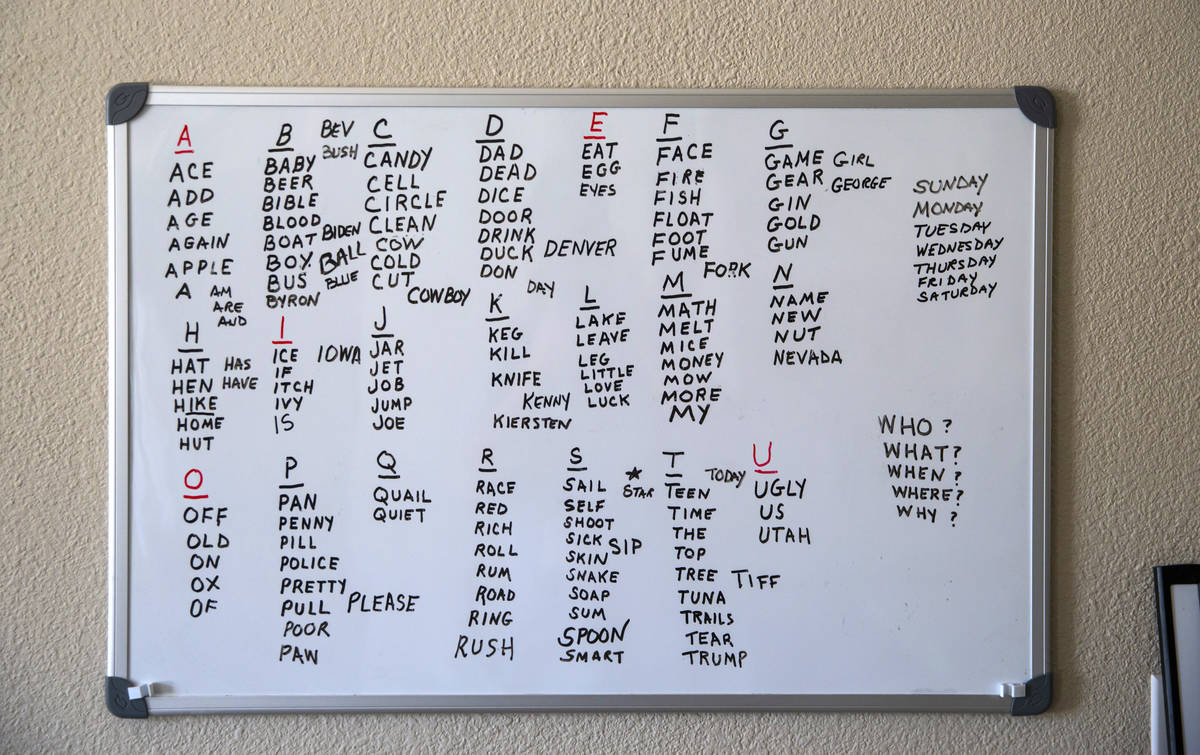 A
ACE
ADD
AGE
AGAIN
APPLE
A AM
ARE
AND
B BEV
BUSH
BABY
BEER
BIBLE
BLOOD
BOAT BIDEN
BOX BALL
BUS BLUE
BYRON
C
CANDY
CELL
CIRCLE
CLEAN
COW
COLD
CUT
COWBOY
D
DAD
DEAD
DICE
DOOR
DRINK
DUCK DENVER
DON
DAY
E
EAT
EGG
EYES
F
FACE
FIRE
FISH
FLOAT
FOOT
FUME
FORK
G
GAME GIRL
GEAR GEORGE
GIN
GOLD
GUN
SUNDAY
MONDAY
TUESDAY
WEDNESDAY
THURSDAY
FRIDAY
SATURDAY
H
HAT HAS
HEN HAVE
HIKE
HOME
HUT
I
ICE IOWA
IF
ITCH
IVY
IS
J
JAR
JET
JOB
JUMP
JOE
K
KEG
KILL
KNIFE
KENNY
KIERSTEN
L
LAKE
LEAVE
LEG
LITTLE
LOVE
LUCK
M
MATH
MELT
MICE
MONEY
MOW
MORE
MY
N
NAME
NEW
NUT
NEVADA
WHO ?
WHAT?
WHEN ?
WHERE?
WHY ?
O
OFF
OLD
ON
OX
OF
P
PAN
PENNY
PILL
POLICE
PRETTY
PULL PLEASE
POOR
PAW
Q
QUAIL
QUIET
R
RACE
RED
RICH
ROLL
RUM
ROAD
RING
RUSH
S
SAIL STAR
SELF
SHOOT
SICK SIP
SKIN
SNAKE
SOAP
SUM
SPOON
SMART
T TODAY
TEEN
TIME
THE
TOP
TREE TIFF
TUNA
TRAILS
TEAR
TRUMP
U
UGLY
US
UTAH